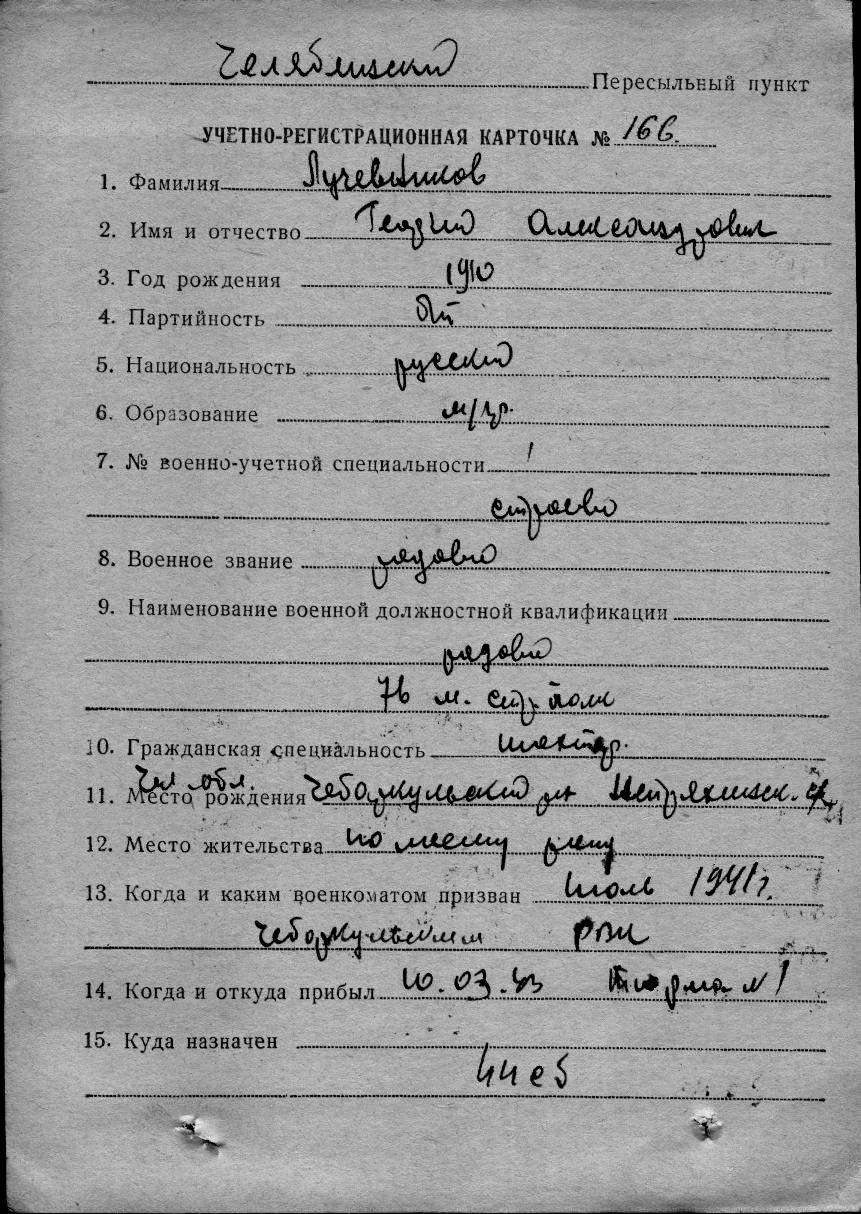 Челябинский Пересыльный пункт
УЧЕТНО-РЕГИСТРАЦИОННАЯ КАРТОЧКА № 166.
1. Фамилия Лучевников
2. Имя и отчество Георгий Александрович
3. Год рождения 1910
4. Партийность б/п
5. Национальность русский
6. Образование м/гр.
7. № военно-учетной специальности 1
строевой
8. Военное звание рядовой
9. Наименование военной должностной квалификации
рядовой
76 м. стр. полк
10. Гражданская специальность
Чел. обл.
11. Место рождения Чебаркульский рн
12. Место жительства по месту рожд
13. Когда и каким военкоматом призван июль 1941 г.
Чебаркульским РВК
14. Когда и откуда прибыл 10.03.43 Тюрьма № 1
15. Куда назначен